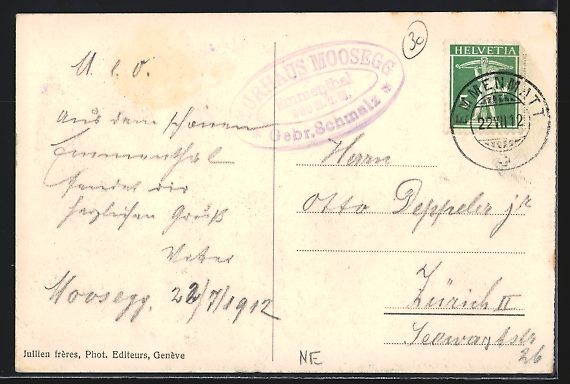 M. l. O.
Aus dem schönen
Emmenthal
sendet dir
herzlichen Gruß
Moosegg. 22/7/1912
Jullien frères, Phot. Editeurs, Genève
RHAUS MOOSEGG
Gebr. Schmalz
30
HELVETIA
EMMENMATT
22.VII.12
Herrn
Otto Deppeler jr
Zürich II
26
NE